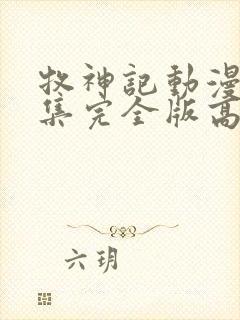 牧神記動漫
集完全版高
六玥